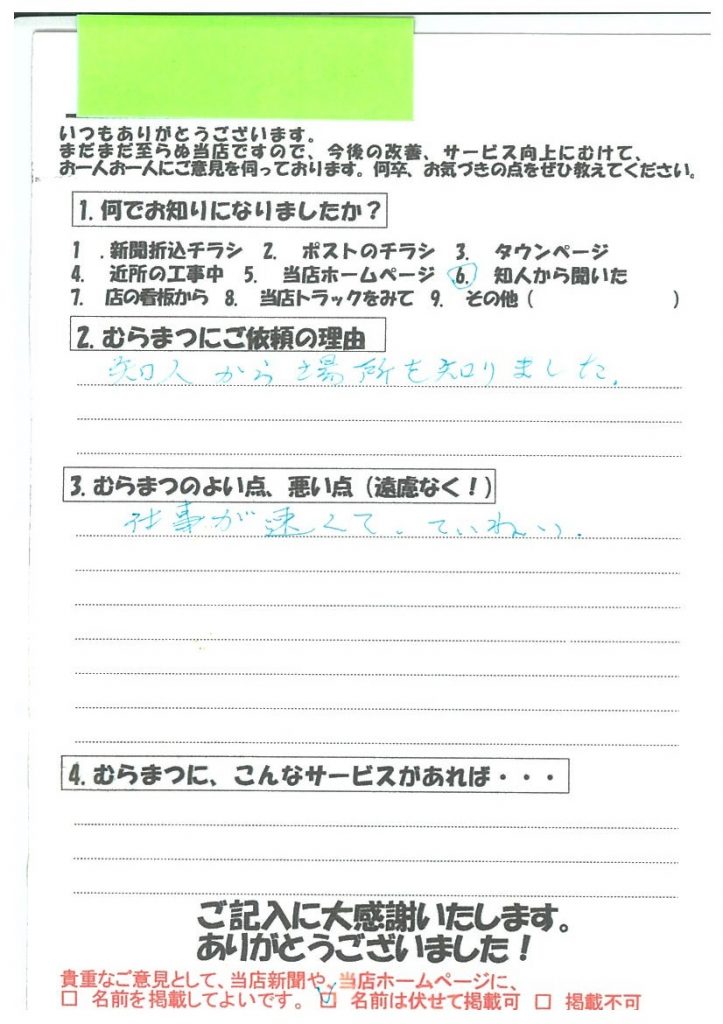 いつもありがとうございます。
まだまだ至らぬ当店ですので、今後の改善、サービス向上にむけて、
お一人お一人にご意見を伺っております。何卒、お気づきの点をぜひ教えてください。
1. 何でお知りになりましたか?
1 .新聞折込チラシ 2. ポストのチラシ 3. タウンページ
4. 近所の工事中 5. 当店ホームページ 6. 知人から聞いた
7. 店の看板から 8. 当店トラックをみて 9. その他 ( )
2. むらまつにご依頼の理由
知人から場所を知りました.
3. むらまつのよい点、悪い点 (遠慮なく!)
仕事が速くて、ていねい.
4. むらまつに、こんなサービスがあれば・・・
ご記入に大感謝いたします。
ありがとうございました!
貴重なご意見として、当店新聞や、当店ホームページに、
☐ 名前を掲載してよいです。 ☑ 名前は伏せて掲載可 ☐ 掲載不可